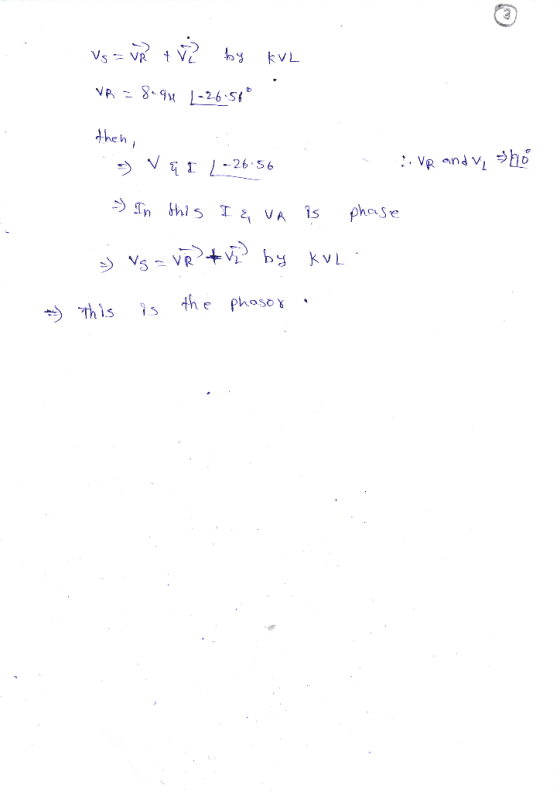 2
Vs = VR + VL by KVL
VR = 8.94 ∠-26.56°
then,
⇒ V & I ∠-26.56 ∴ VR and VL ⇒ 90°
⇒ In this I & VR is phase
⇒ Vs = VR + VL by KVL
⇒ This is the phasor.